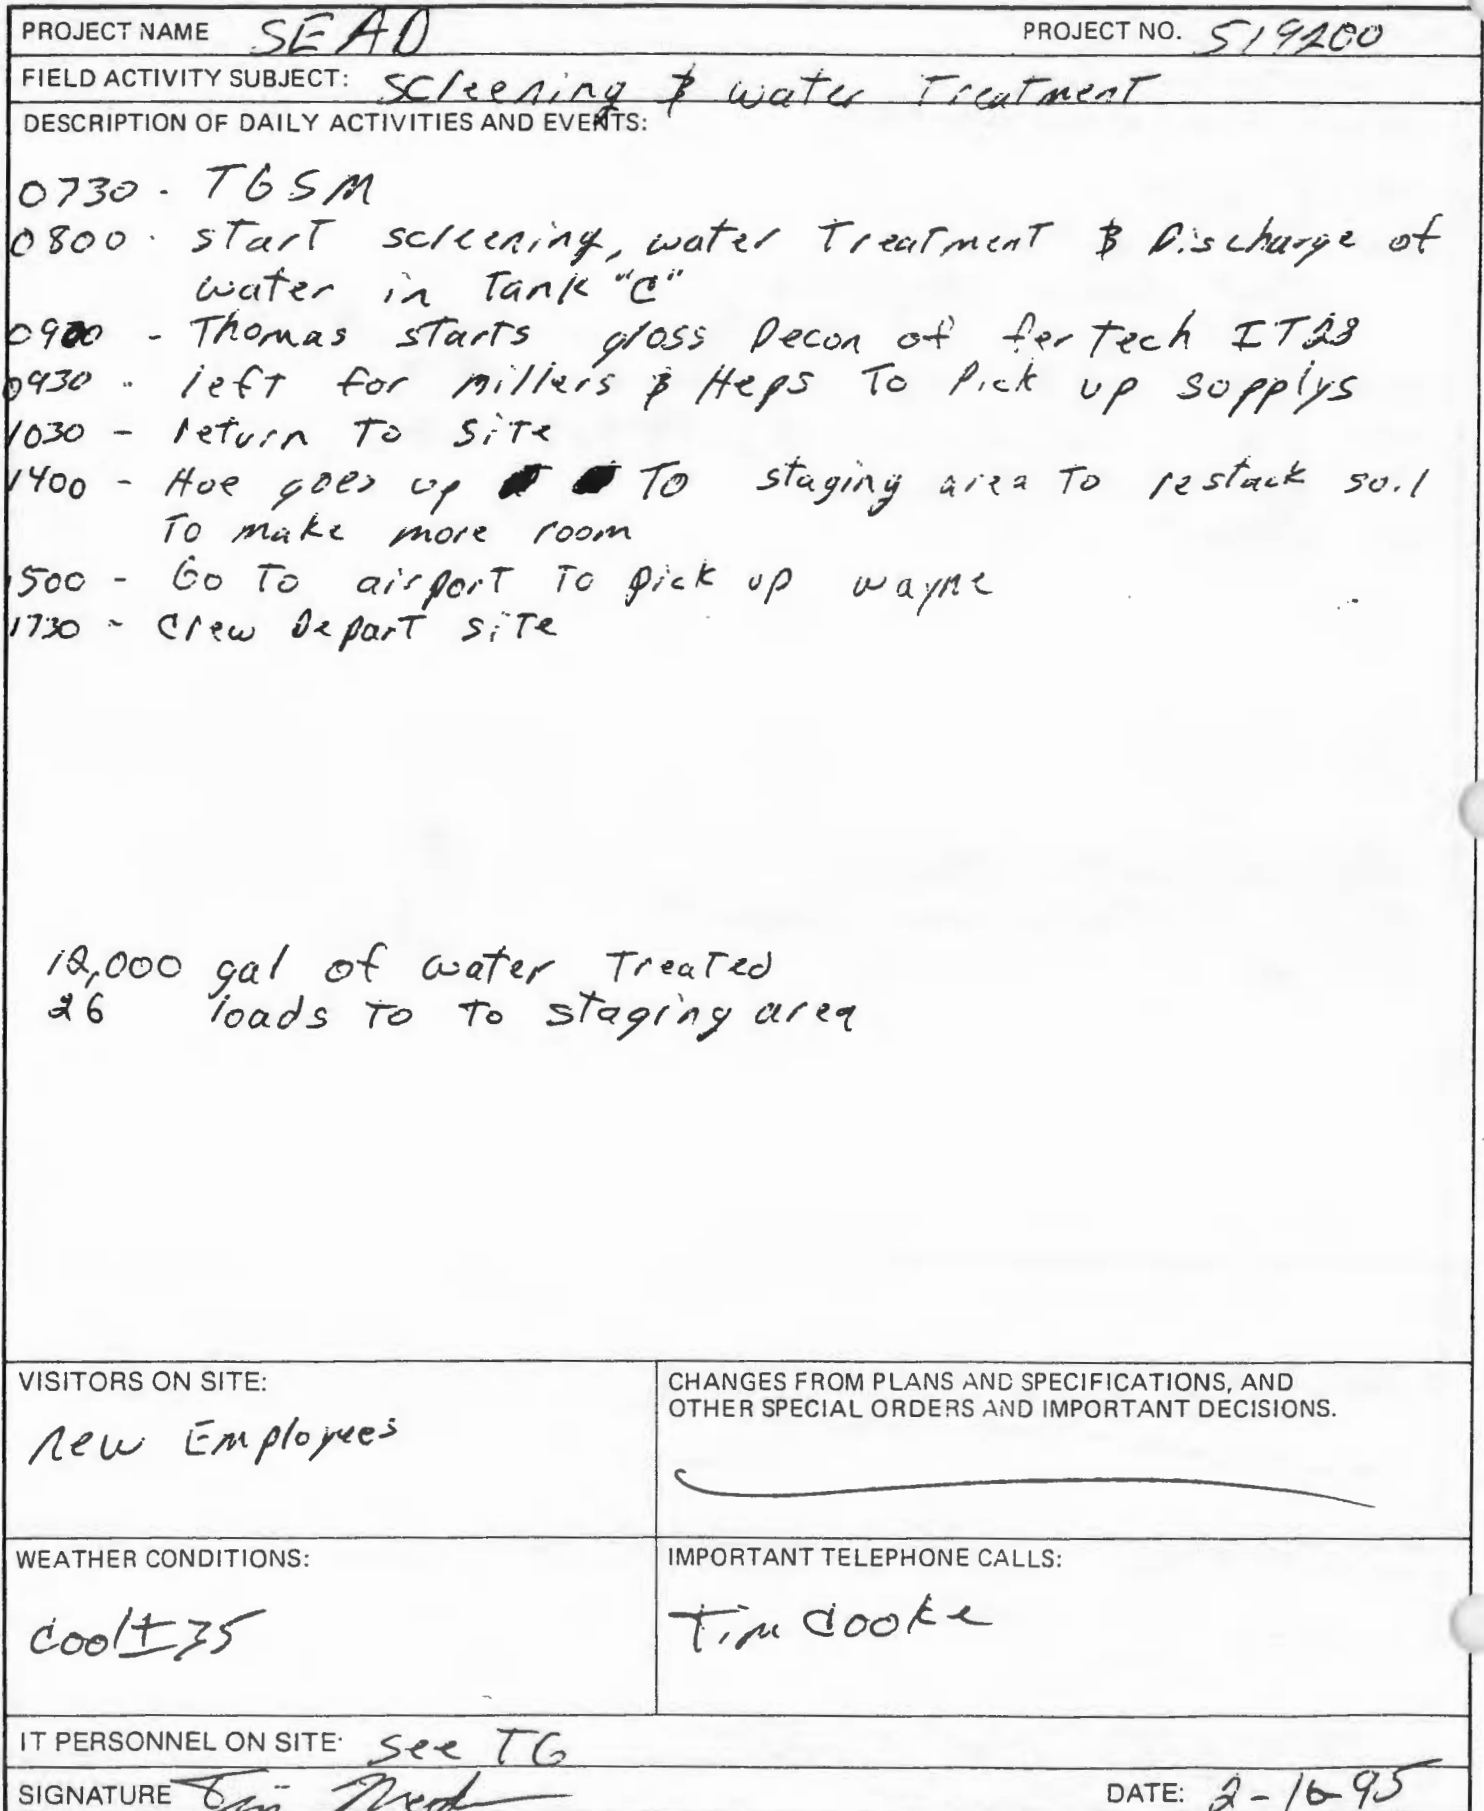 PROJECT NAME SEAD PROJECT NO. 519200
FIELD ACTIVITY SUBJECT: Screening & water Treatment
DESCRIPTION OF DAILY ACTIVITIES AND EVENTS:
0730 - TGSM
0800 - start screening, water Treatment & Discharge of
water in Tank "C"
0900 - Thomas starts gross Decon of fer Tech IT28
0930 - left for millers & Heps To Pick up supplys
1030 - return To site
1400 - Hoe goes up To staging area To restack soil
To make more room
1500 - Go To airport To pick up wayne
1730 - Crew Depart site
12,000 gal of water Treated
26 loads To To staging area
VISITORS ON SITE:
new Employees
CHANGES FROM PLANS AND SPECIFICATIONS, AND
OTHER SPECIAL ORDERS AND IMPORTANT DECISIONS.
WEATHER CONDITIONS:
Cool ± 35
IMPORTANT TELEPHONE CALLS:
Tim Cooke
IT PERSONNEL ON SITE: See TG
SIGNATURE Tim
DATE: 2-16-95